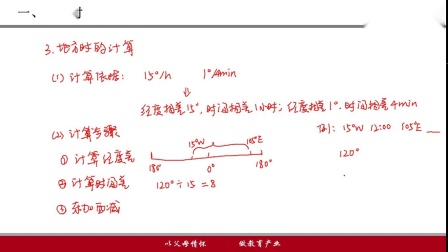 一、 时
3. 地方时的计算
(1) 计算依据: 15°/h 1°/4min
⇓
经度相差15°, 时间相差1小时; 经度相差1°, 时间相差4min
(2) 计算步骤 例: 15°W 12:00 105°E __
① 计算经度差 15°W 105°E 120°
180° 0° 180°
② 计算时间差 120° ÷ 15 = 8
③ 东加西减
以父母情怀 做教育产业